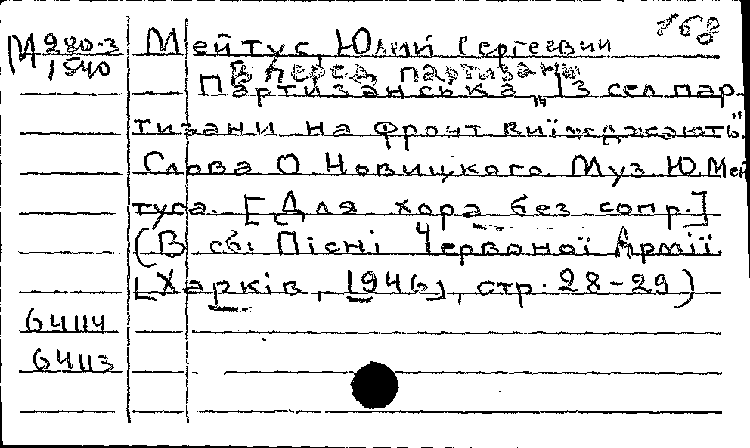 М 280-3 Мейтус, Юлий Сергеевич 768
1540 Вперед партизаны
Партизанська „Із сел пар-
тизани на фронт виїжджають"
Слова О. Новицкого. Муз. Ю. Мей
туса. [Для хора без сопр.]
(В сб: Пісні Червоної Армії
[Харків, 1946], стр. 28-29)
64114
64113